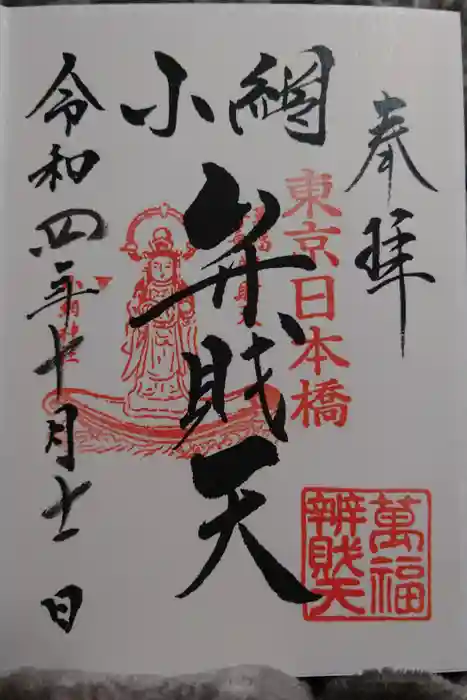 奉拝
東京日本橋
小網
弁財天
萬福
辨財天
小網神社
令和四年十月十一日